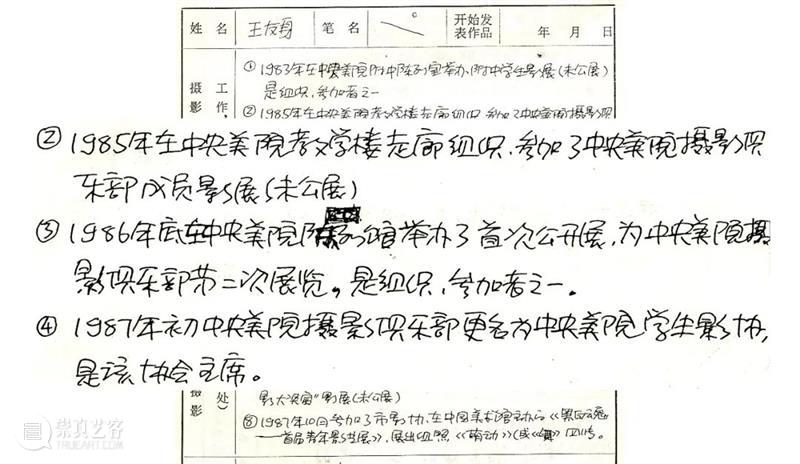 姓 名 王友身 笔 名 开始发表作品 年 月 日
摄影 工作
①1983年在中央美院附中陈列室举办附中学生影展(未公展)
是组织、参加者之一
②1985年在中央美院教学楼走廊组织、参加了中央美院摄影俱
②1985年在中央美院教学楼走廊组织、参加了中央美院摄影俱
乐部成员影展(未公展)
③1986年底在中央美院陈列馆举办了首次公开展,为中央美院摄
影俱乐部第二次展览。是组织、参加者之一。
④1987年初中央美院摄影俱乐部更名为中央美院学生影协,
是该协会主席。
摄影 处)
影展(未公展)
⑧1987年10月参加了市影协、在中国美术馆主办的
首届青年影艺展》,展出组照
崇真艺客